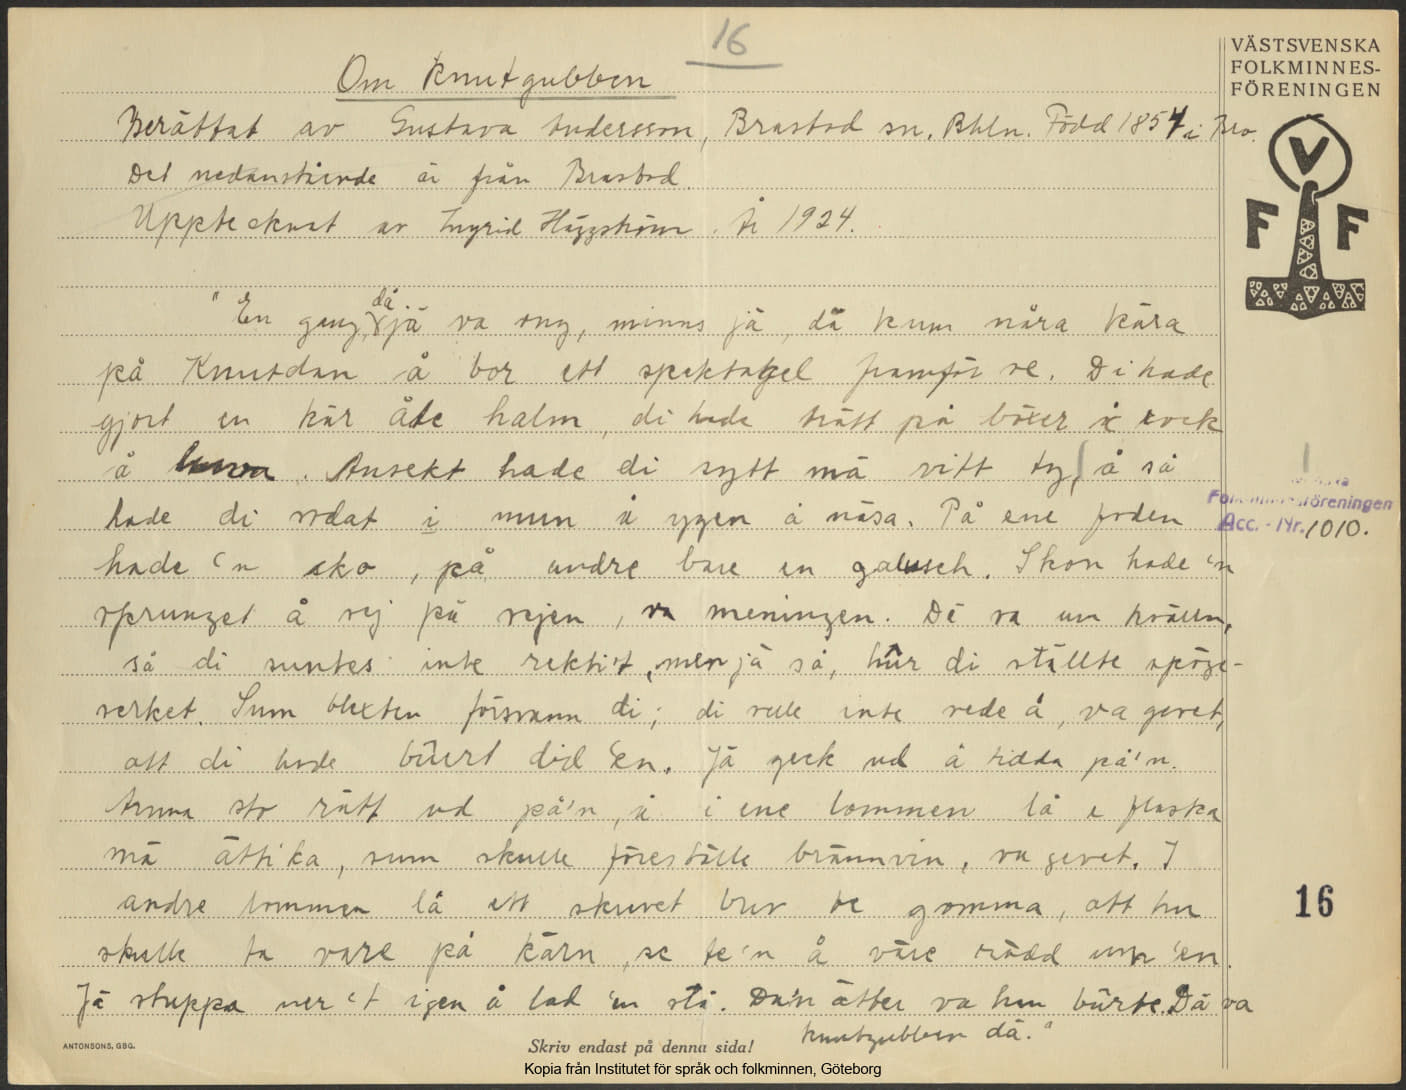 16
VÄSTSVENSKA
FOLKMINNES-
FÖRENINGEN
V
F F
Om Knutgubben
Berättat av Gustava Andersson, Brastad sn. Bhln. Född 1854 i Bro.
Det nedanstående är från Brastad.
Upptecknat av Ingrid Häggström. År 1924.
"En gang, då jä va ong, minns jä, då kum nåra kära
på Knutdan å bor ett spektakel framför re. Di hade
gjort en kär åte halm, di hade trätt på böxer å rock
å luva. Ansekt hade di sytt mä vitt ty, å så
hade di ridat i mun å ygen å näsa. På ene foden
hade 'n sko, på andre bare en galusch. Skon hade 'n
sprunget å sej på vejen, va meningen. Dé va um kvälln,
så di syntes inte rekti't, men jä så, hur di ställte spöge-
verket. Sum blexten försvann di; di velle inte rede å, va gevet,
att di hade büert did 'en. Jä geck ud å tidda på'n.
Arma sto rätt ud på'n, å i ene lommen lå e flaska
mä ättika, sum skulle föreställe brännvin, va gevet. I
andre lommen lå ett skrevet brev te gomma, att hu
skulle ta vare på kärn, se te'n å väre rädd um 'en.
Jä stuppa ner 't igen å lad 'en stå. Da'n ätter va han bürte. Dä va
knutgubben dä."
Folkminnesföreningen
Acc. - Nr. 1010.
16
ANTONSONS, GBG.
Skriv endast på denna sida!
Kopia från Institutet för språk och folkminnen, Göteborg